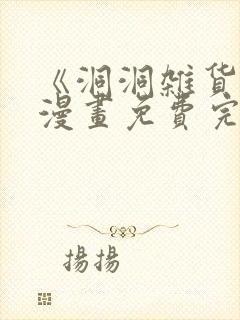 《洞洞雑货
漫畫免費完
揚揚